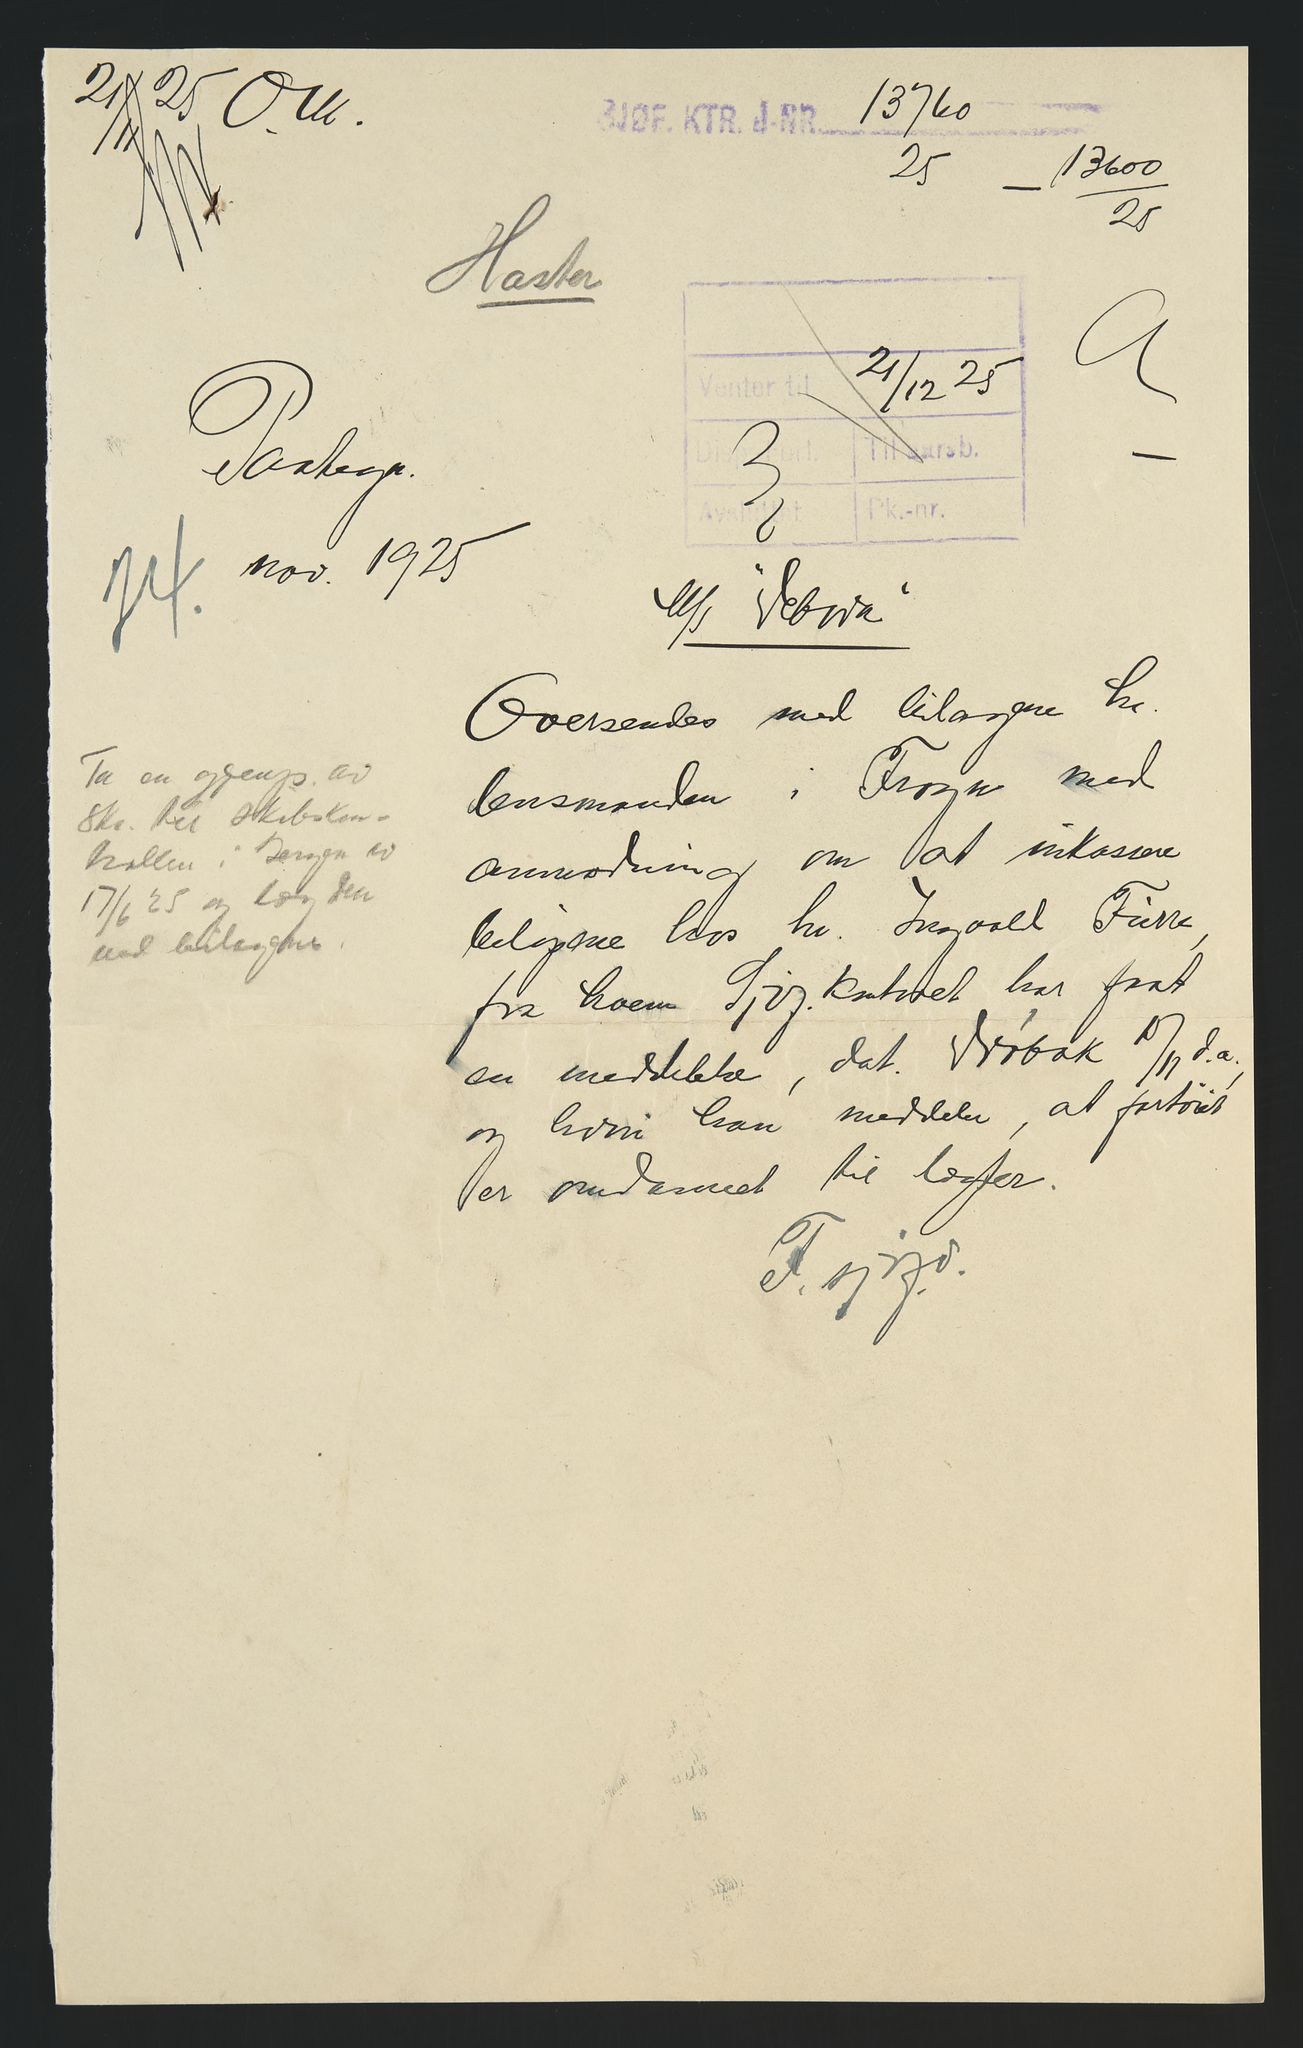 21/11 25 O.M.
SJØF. KTR. J-NR. 13760
25 — 13600
25
Haster
Venter til 21/12 25
Til aarsb.
Pk.-nr.
A
Paategn.
24. nov. 1925
M/S "Debora"
Oversendes med bilagene hr.
lensmanden i Frogn med
anmodning om at inkassere
beløpene hos hr. Ingvald Furre,
fra hvem Sjøf.kontoret har faat
en meddelelse, dat. Drøbak 15/11 d.a.,
og hvori han meddeler, at fartøiet
er omdannet til lægter.
F. sjøf.d.
Ta en gjenp. av
Skr. til skibskon-
trollen i Bergen av
17/6 25 og læg den
ved bilagene.